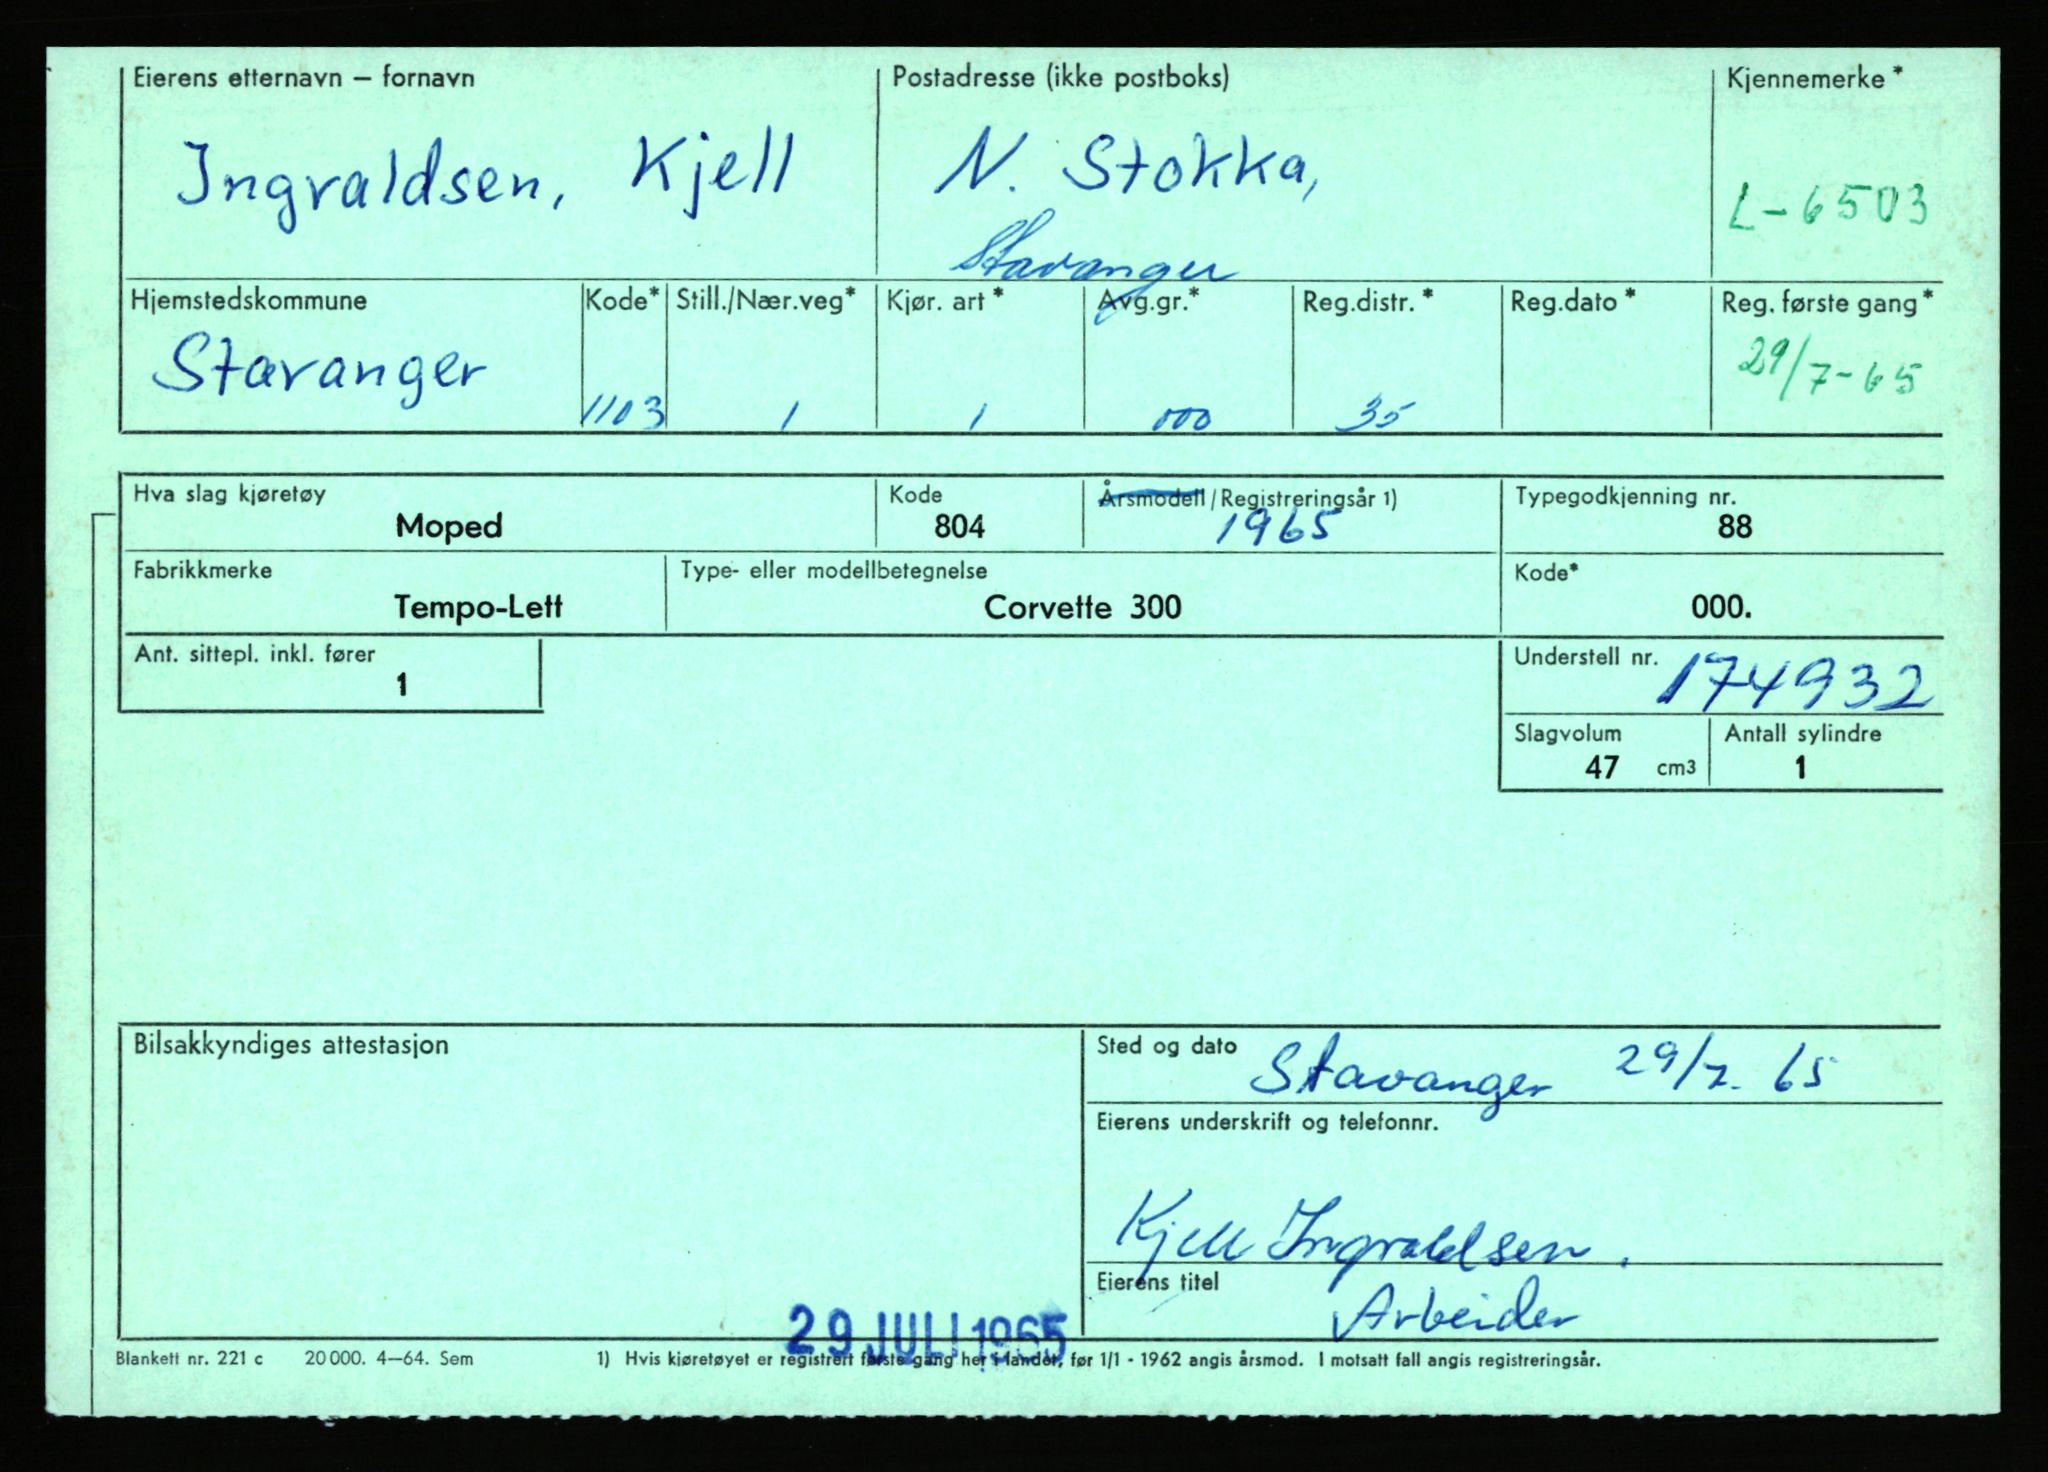 Eierens etternavn – fornavn
Ingvaldsen, Kjell
Postadresse (ikke postboks)
N. Stokka,
Stavanger
Kjennemerke*
L-6503
Hjemstedskommune
Stavanger
Kode*
1103
Still./Nær.veg*
1
Kjør. art*
1
Avg.gr.*
000
Reg.distr.*
35
Reg.dato*
Reg. første gang*
29/7-65
Hva slag kjøretøy
Moped
Kode
804
Årsmodell/Registreringsår 1)
1965
Typegodkjenning nr.
88
Fabrikkmerke
Tempo-Lett
Type- eller modellbetegnelse
Corvette 300
Kode*
000.
Ant. sittepl. inkl. fører
1
Understell nr.
174932
Slagvolum
47 cm3
Antall sylindre
1
Bilsakkyndiges attestasjon
29 JULI 1965
Sted og dato
Stavanger 29/7. 65
Eierens underskrift og telefonnr.
Kjell Ingvaldsen.
Eierens titel
Arbeider
Blankett nr. 221 c 20000. 4–64. Sem
1) Hvis kjøretøyet er registrert første gang her i landet, før 1/1 - 1962 angis årsmod. I motsatt fall angis registreringsår.